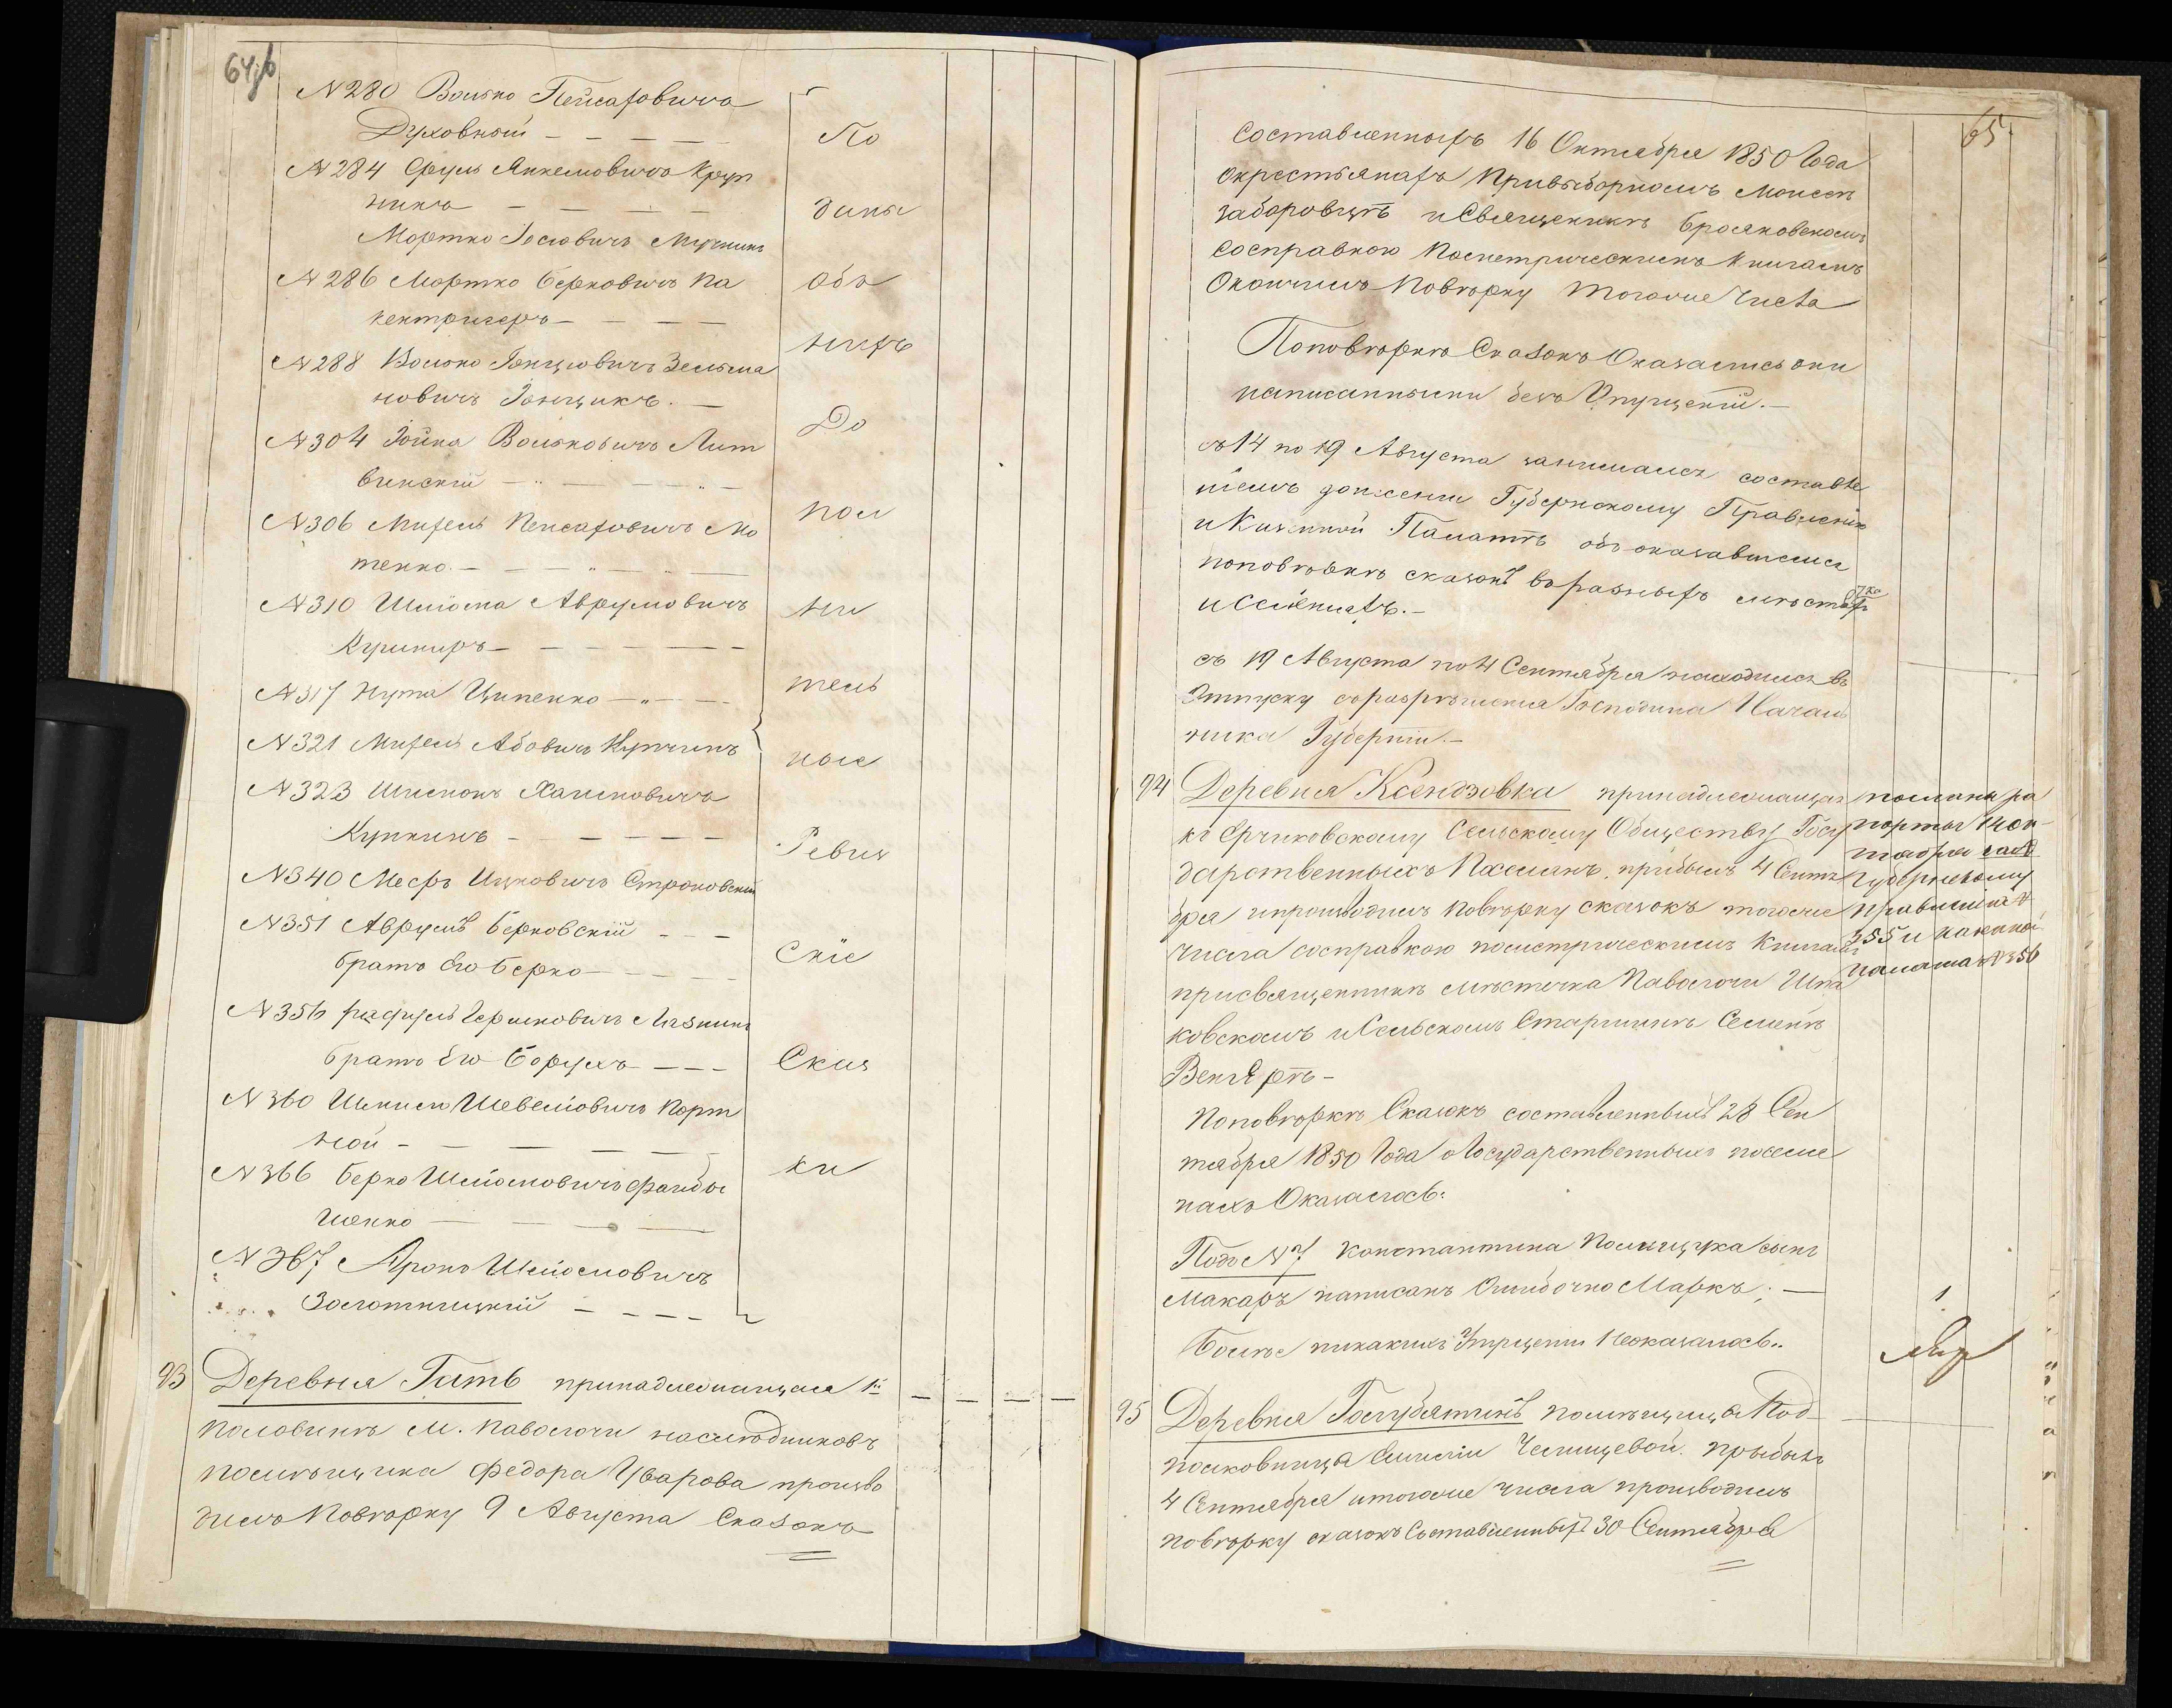 64 об
N 280 Волько Пейсаховичъ
Духовный — — — —
N 284 Сруль Янкелювичъ Круп
никъ — — — —
Мортко Іосіовичъ Мучникъ
N 286 Мортко Берковичъ Ка
кентригеръ — — —
N 288 Волько Іонцювичъ Зельма
новичъ Іонцикъ. —
N 304 Іойна Вольковичъ Лит
винскій — " — — " —
N 306 Михель Пейсаховичъ Мо
тенко — — — " — " —
N 310 Шліома Аврумовичъ
Кушниръ — — — — —
N 317 Нута Ципенко — " — —
N 321 Михель Абовичъ Купчикъ
N 323 Шлемонъ Хаимовичъ
Купчикъ — — — —
N 340 Мееръ Ицковичъ Строковскій
N 351 Аврумъ Берковскій — — —
братъ его Берко — — — —
N 356 Рафуль Гершковичъ Лазникъ
братъ Его Борухъ — — —
N 360 Шмилъ Шевелювичъ Порт
ной — — — — —
N 366 Берко Шліомовичъ Файбы
шенко — — — —
N 367 Аронъ Шліомовичъ
Золотницкій — — — —
По
даны
объ
нихъ
До
пол
ни
тель
ные
Ревиз
скіе
Сказ
ки
93 Деревня Гать принадлежащая 1й
половинѣ М. Паволочи наслѣдниковъ
помѣщика Федора Уварова произво
дилъ Повѣрку 9 Августа Сказокъ
65.
составленныхъ 16 Октября 1850 Года
окрестьянахъ привыборномъ Моисеѣ
Заборовцѣ и Священникѣ Бросяковскомъ
Сосправкою Поспетрическимъ Книгамъ
Окончилъ Повѣрку Тогоже Числа
Поповѣркѣ Сказокъ Оказались они
написанными безъ Опущеній. —
съ 14 по 19 Августа занимался составле
ніемъ донесеніи Губернскому Правленію
и Казенной Палатѣ объ оказавшемся
поповѣркѣ сказокъ въ разныхъ мѣстахъ
и Селеніяхъ. —
съ 19 Августа по 4 Сентября находился въ
Отпуску съ разрѣшенія Господина Началь
ника Губерніи. —
94 Деревня Ксендзовка принадлежащая
къ Ерчиковскому Сельскому Обществу Госу
дарственныхъ Поселянъ, прибылъ 4 Сентя
бря ипроизводилъ повѣрку сказокъ тогоже
числа сосправкою поистрическимъ Книгамъ
присвященникѣ мѣстечка Паволочи Шпа
ковскомъ и Сельскомъ Старшинѣ Семенѣ
Венгерѣ —
посланы ра
порты 1 Ок
тября за N
Губернскому
Правленію N
355 и Казенной
Палатѣ N 356
Поповѣркѣ Сказокъ составленныхъ 28 Сен
тября 1850 Года о Государственныхъ поселя
нахъ Оказалось:
Подъ N 7 Константина Полищука сынъ
Макаръ написанъ Ошибочно Маркъ; —
1
Болѣе никакихъ Упущеній Неоказалось..
95 Деревня Голубятинъ помѣщицы Под
полковницы Емиліи Челищевой. прыбылъ
4 Сентября итогоже числа производилъ
повѣрку сказокъ Составленныхъ 30 Сентября